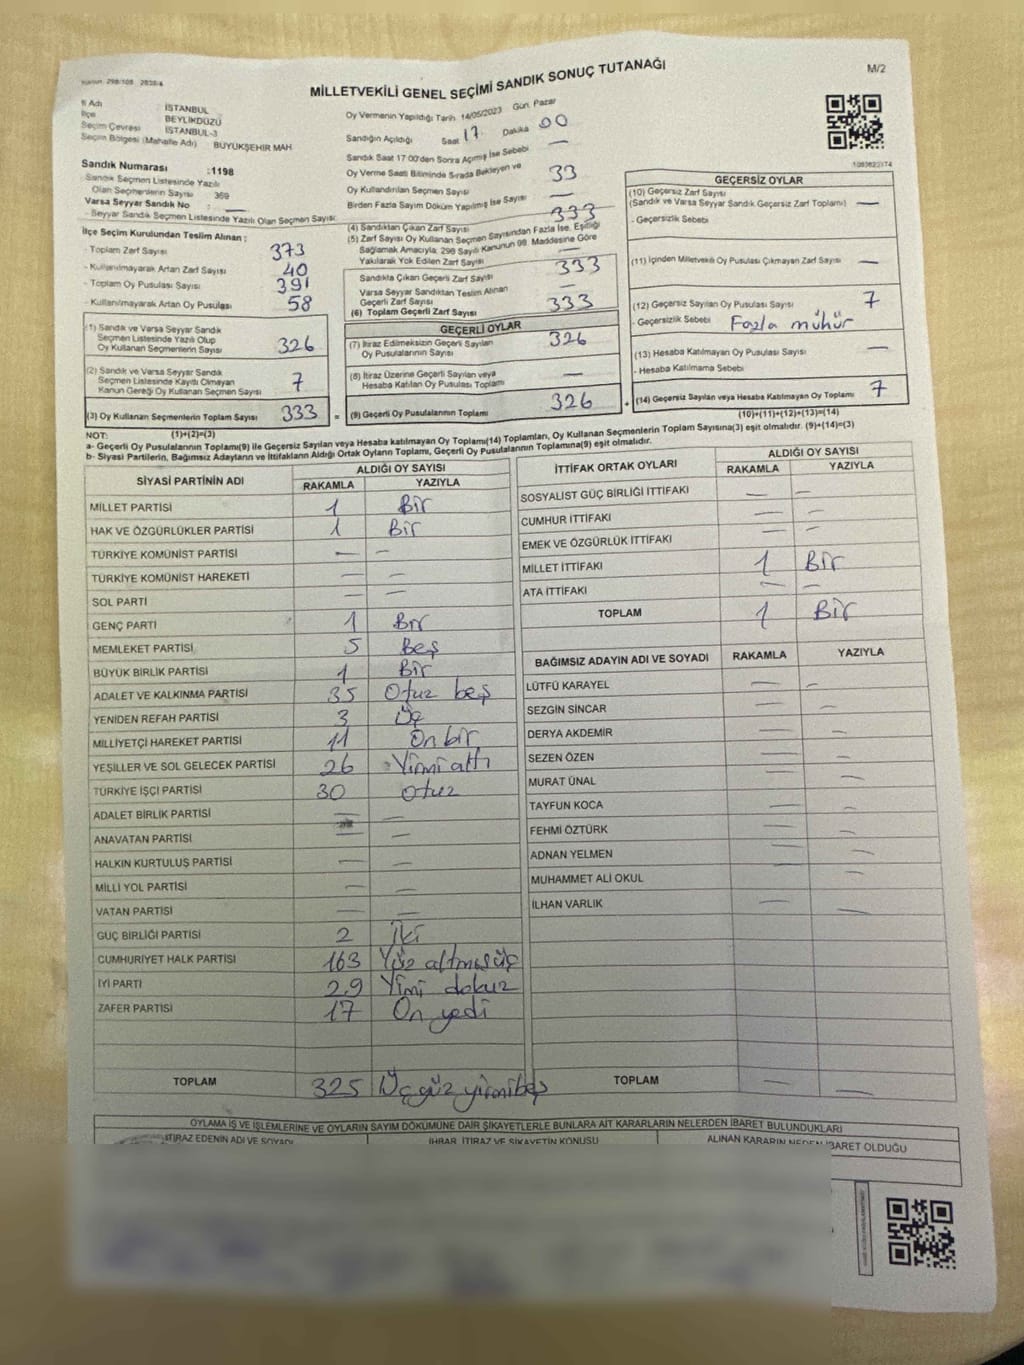 MİLLETVEKİLİ GENEL SEÇİMİ SANDIK SONUÇ TUTANAĞI
M/2
İl Adı İSTANBUL
İlçe BEYLİKDÜZÜ
Seçim Çevresi İSTANBUL-3
Seçim Bölgesi (Mahalle Adı) BÜYÜKŞEHİR MAH.
Sandık Numarası :1198
Sandık Seçmen Listesinde Yazılı
Olan Seçmenlerin Sayısı 369
Varsa Seyyar Sandık No :
- Seyyar Sandık Seçmen Listesinde Yazılı Olan Seçmen Sayısı
Oy Vermenin Yapıldığı Tarih 14/05/2023 Gün. Pazar
Sandığın Açıldığı Saat 17 Dakika 00
Sandık Saat 17.00'den Sonra Açılmış İse Sebebi —
Oy Verme Saati Bitiminde Sırada Bekleyen ve
Oy Kullandırılan Seçmen Sayısı 33
Birden Fazla Sayım Döküm Yapılmış İse Sayısı —
İlçe Seçim Kurulundan Teslim Alınan :
- Toplam Zarf Sayısı 373
- Kullanılmayarak Artan Zarf Sayısı 40
- Toplam Oy Pusulası Sayısı 391
- Kullanılmayarak Artan Oy Pusulası 58
(1) Sandık ve Varsa Seyyar Sandık
Seçmen Listesinde Yazılı Olup
Oy Kullanan Seçmenlerin Sayısı 326
(2) Sandık ve Varsa Seyyar Sandık
Seçmen Listesinde Kayıtlı Olmayan
Kanun Gereği Oy Kullanan Seçmen Sayısı 7
(3) Oy Kullanan Seçmenlerin Toplam Sayısı 333 =
(4) Sandıktan Çıkan Zarf Sayısı 333
(5) Zarf Sayısı Oy Kullanan Seçmen Sayısından Fazla İse, Eşitliği
Sağlamak Amacıyla; 298 Sayılı Kanunun 98. Maddesine Göre
Yakılarak Yok Edilen Zarf Sayısı —
Sandıkta Çıkan Geçerli Zarf Sayısı 333
Varsa Seyyar Sandıktan Teslim Alınan
Geçerli Zarf Sayısı —
(6) Toplam Geçerli Zarf Sayısı 333
GEÇERLİ OYLAR
(7) İtiraz Edilmeksizin Geçerli Sayılan
Oy Pusulalarının Sayısı 326
(8) İtiraz Üzerine Geçerli Sayılan veya
Hesaba Katılan Oy Pusulası Toplamı
(9) Geçerli Oy Pusulalarının Toplamı 326 +
1093622174
GEÇERSİZ OYLAR
(10) Geçersiz Zarf Sayısı
(Sandık ve Varsa Seyyar Sandık Geçersiz Zarf Toplamı) —
- Geçersizlik Sebebi
(11) İçinden Milletvekili Oy Pusulası Çıkmayan Zarf Sayısı —
(12) Geçersiz Sayılan Oy Pusulası Sayısı 7
- Geçersizlik Sebebi Fazla mühür
(13) Hesaba Katılmayan Oy Pusulası Sayısı —
- Hesaba Katılmama Sebebi
(14) Geçersiz Sayılan veya Hesaba Katılmayan Oy Toplamı 7
NOT: (1)+(2)=(3)
(10)+(11)+(12)+(13)=(14)
a- Geçerli Oy Pusulalarının Toplamı(9) ile Geçersiz Sayılan veya Hesaba katılmayan Oy Toplamı(14) Toplamları, Oy Kullanan Seçmenlerin Toplam Sayısına(3) eşit olmalıdır. (9)+(14)=(3)
b- Siyasi Partilerin, Bağımsız Adayların ve İttifakların Aldığı Ortak Oyların Toplamı, Geçerli Oy Pusulalarının Toplamına(9) eşit olmalıdır.
SİYASİ PARTİNİN ADI ALDIĞI OY SAYISI
RAKAMLA YAZIYLA
MİLLET PARTİSİ 1 Bir
HAK VE ÖZGÜRLÜKLER PARTİSİ 1 Bir
TÜRKİYE KOMÜNİST PARTİSİ — —
TÜRKİYE KOMÜNİST HAREKETİ — —
SOL PARTİ — —
GENÇ PARTİ 1 Bir
MEMLEKET PARTİSİ 5 Beş
BÜYÜK BİRLİK PARTİSİ 1 Bir
ADALET VE KALKINMA PARTİSİ 35 Otuz beş
YENİDEN REFAH PARTİSİ 3 Üç
MİLLİYETÇİ HAREKET PARTİSİ 11 On bir
YEŞİLLER VE SOL GELECEK PARTİSİ 26 Yirmi altı
TÜRKİYE İŞÇİ PARTİSİ 30 Otuz
ADALET BİRLİK PARTİSİ — —
ANAVATAN PARTİSİ — —
HALKIN KURTULUŞ PARTİSİ — —
MİLLİ YOL PARTİSİ — —
VATAN PARTİSİ — —
GÜÇ BİRLİĞİ PARTİSİ 2 İki
CUMHURİYET HALK PARTİSİ 163 Yüz altmış üç
İYİ PARTİ 29 Yimi dokuz
ZAFER PARTİSİ 17 On yedi
TOPLAM 325 Üçyüz yirmibeş
İTTİFAK ORTAK OYLARI ALDIĞI OY SAYISI
RAKAMLA YAZIYLA
SOSYALİST GÜÇ BİRLİĞİ İTTİFAKI — —
CUMHUR İTTİFAKI — —
EMEK VE ÖZGÜRLÜK İTTİFAKI — —
MİLLET İTTİFAKI 1 Bir
ATA İTTİFAKI — —
TOPLAM 1 Bir
BAĞIMSIZ ADAYIN ADI VE SOYADI RAKAMLA YAZIYLA
LÜTFÜ KARAYEL — —
SEZGİN SİNCAR — —
DERYA AKDEMİR — —
SEZEN ÖZEN — —
MURAT ÜNAL — —
TAYFUN KOCA — —
FEHMİ ÖZTÜRK — —
ADNAN YELMEN — —
MUHAMMET ALİ OKUL —
İLHAN VARLIK — —
TOPLAM — —
OYLAMA İŞ VE İŞLEMLERİNE VE OYLARIN SAYIM DÖKÜMÜNE DAİR ŞİKAYETLERLE BUNLARA AİT KARARLARIN NELERDEN İBARET BULUNDUKLARI
İTİRAZ EDENİN ADI VE SOYADI İHBAR, İTİRAZ VE ŞİKAYETİN KONUSU ALINAN KARARIN NEDEN İBARET OLDUĞU